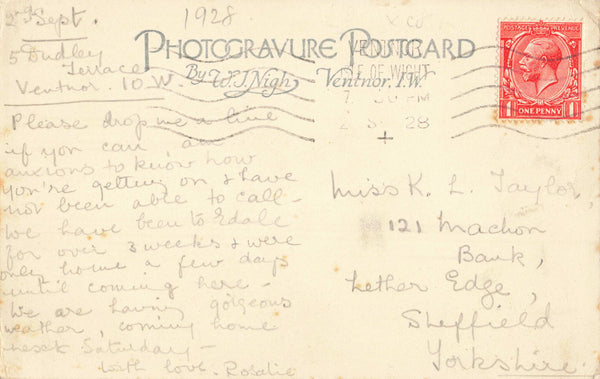 2nd Sept.
1928
5 Dudley
Terrace
Ventnor. I.O.W.
PHOTOGRAVURE POSTCARD
By W.J. Nigh Ventnor. I.W.
VENTNOR
ISLE OF WIGHT
7 30 PM
2 SP 28
POSTAGE REVENUE
ONE PENNY
Please drop me a line
if you can am
anxious to know how
you're getting on & have
not been able to call -
we have been to Edale
for over 3 weeks & were
only home a few days
until coming here -
We are having gorgeous
weather, coming home
next Saturday -
with love. Rosalie
Miss K. L. Taylor,
121 Machon
Bank,
Nether Edge,
Sheffield
Yorkshire.